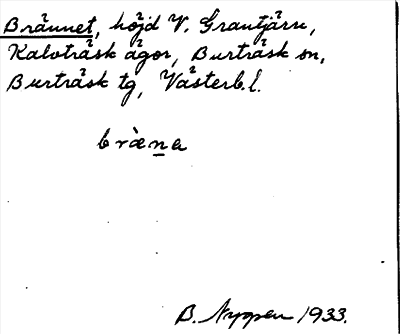 Brännet, höjd V. Grantjärn,
Kalvträsk ägor, Burträsk sn,
Burträsk tg, Västerb.l.
bræ̀na
B. Nyppen 1933.